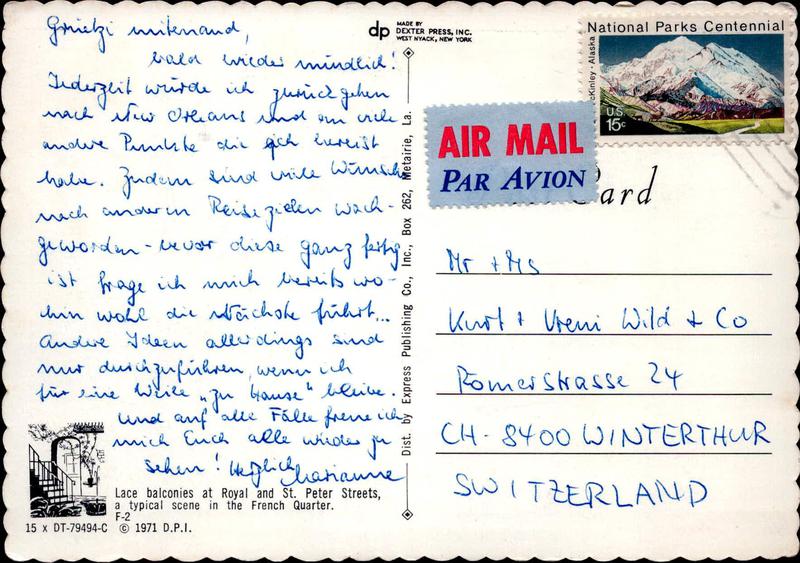 Grüetzi mitenand,
bald wieder mündlich!
Jederzeit würde ich zurückgehen
nach New Orleans und an viele
andere Punkte die ich bereist
habe. Zudem sind viele Wünsche
nach anderen Reisezielen wach-
geworden - bevor diese ganz fertig
ist frage ich mich bereits wo-
hin wohl die Nächste führt...
Andere Ideen allerdings sind
nur durchzuführen, wenn ich
für eine Weile "zu Hause" bleibe.
Und auf alle Fälle freue ich
mich Euch alle wieder zu
sehen! Herzlich Marianne
Lace balconies at Royal and St. Peter Streets,
a typical scene in the French Quarter.
F-2
15 x DT-79494-C © 1971 D.P.I.
dp MADE BY
DEXTER PRESS, INC.
WEST NYACK, NEW YORK
Dist. by Express Publishing Co., Inc., Box 262, Metairie, La.
National Parks Centennial
McKinley · Alaska
U.S.
15c
AIR MAIL
PAR AVION
Card
Mr + Ms
Kurt + Vreni Wild + Co
Römerstrasse 24
CH-8400 WINTERTHUR
SWITZERLAND